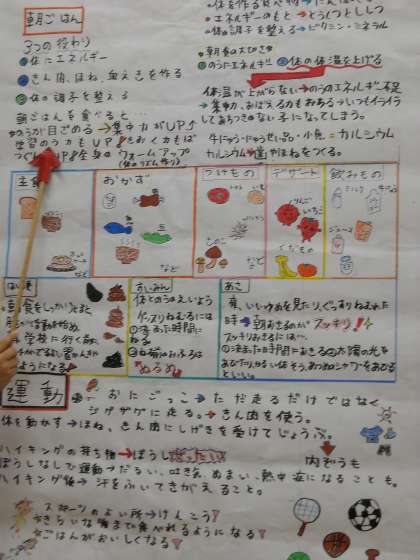 朝ごはん
3つの役わり
①体にエネルギー
②きん肉、ほね、血えきを作る
③体の調子を整える
朝ごはんを食べると…
のうが目ざめる→集中力がUP↑
学習のう力もUP
ウォームアップ
体を作る食べ物→
・エネルギーのもと→とうしつ、ししつ
・体の調子を整える→ビタミン・ミネラル
朝食の大ひさき
①のうにエネルギー ②体の体温を上げる
体温が上がらない→のうのエネルギー不足
→集中力、おぼえる力もおちる→いつもイライラ
してあちつきのない子になってしまう。
牛にゅう・にゅうせい品・小魚=カルシウム
カルシウム→歯やほねをつくる。
主食
おかず
つけもの
デザート
飲みもの
りんご
いちご
きのこ
くだもの
ジュース
など
など
など
朝食をしっかりとると
学校に行く前
ようになる!
すいみん
体とのうのえいよう
グッスリねむるには
①決まった時間に
ねる
②お風呂のおふろは
ぬるめ
あさ
夜、いいゆめを見たり、ぐっすりねむれた
時→朝おきるのがスッキリ!
スッキリおきるには…
①決まった時間におきる ②太陽の光を
といい。
運動
おにごっこ→ただ走るだけではなく
ジグザグに走る。→きん肉を使う。
体を動かす→ほね、きん肉にしげきを受けてじょうぶ。
内ぞうも
ハイキングの持ち物→ぼうし
ぼうしなしで運動→だるい、はきけ、めまい、熱中症になることも。
ハイキング後→汗をふいてきがえること。
スポーツのよい所→けんこう!
きらいな物まで食べれるようになる!
ごはんがおいしくなる!